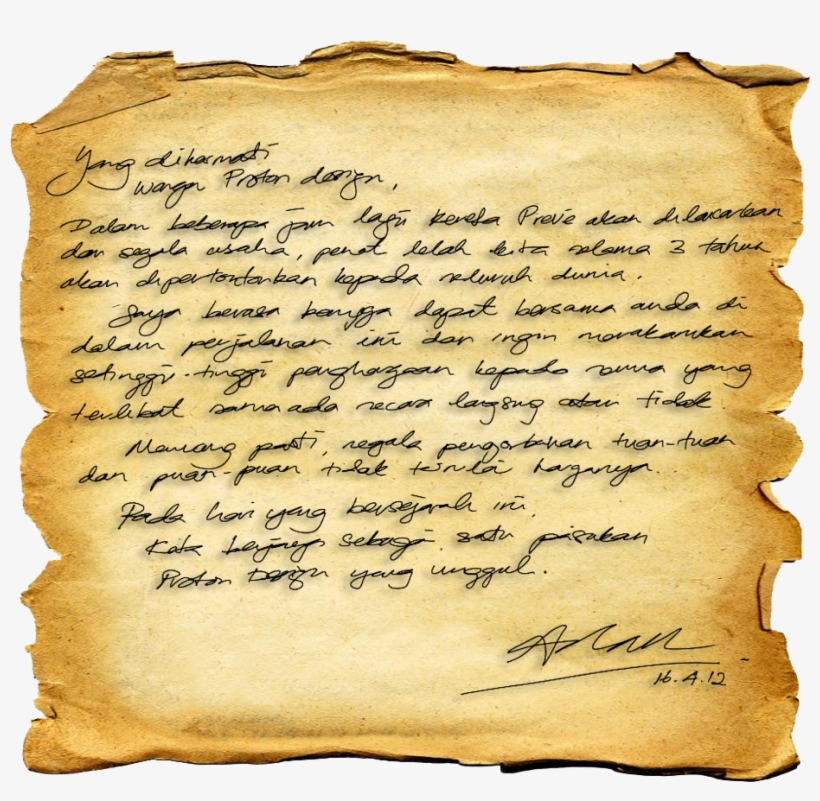 Yang dihormati
warga Proton design,
Dalam beberapa jam lagi kereta Preve akan dilancarkan
dan segala usaha, penat lelah kita selama 3 tahun
akan dipertontonkan kepada seluruh dunia.
Saya berasa bangga dapat bersama anda di
dalam perjalanan ini dan ingin merakamkan
setinggi-tinggi penghargaan kepada semua yang
terlibat samaada secara langsung atau tidak.
Memang pasti, segala pengorbanan tuan-tuan
dan puan-puan tidak ternilai harganya...
Pada hari yang bersejarah ini,
Kita berjaya sebagai satu pasukan
Proton Design yang unggul.
16.4.12